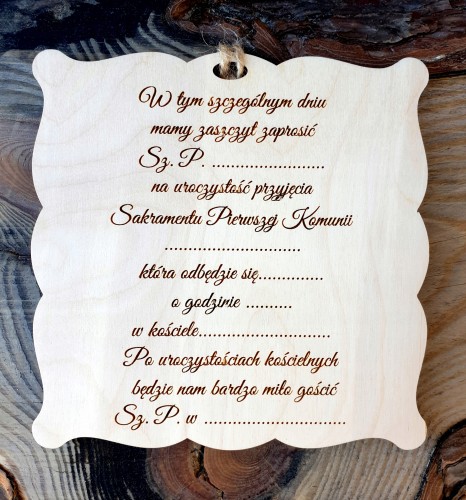 W tym szczególnym dniu
mamy zaszczyt zaprosić
Sz. P. ......................
na uroczystość przyjęcia
Sakramentu Pierwszej Komunii
...........................
która odbędzie się.............
o godzinie ..........
w kościele..........................
Po uroczystościach kościelnych
będzie nam bardzo miło gościć
Sz. P. w ............................